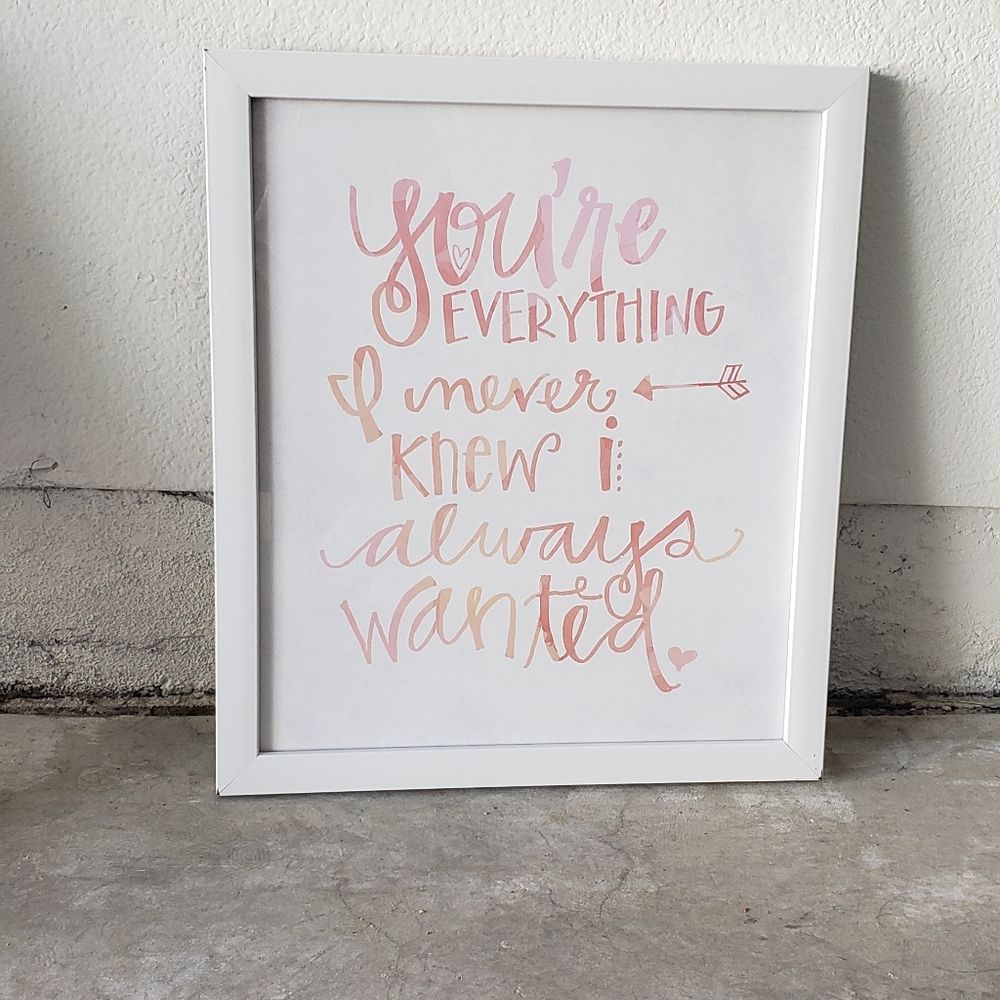 you're
EVERYTHING
I never
knew i
always
wanted.